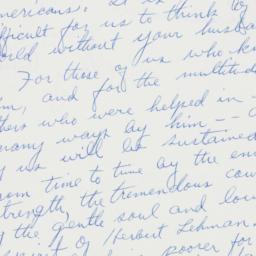 mericans. It is
fficult for us to think of
orld without your husba
For those of us who kn
m, and for the multitud
thers who were helped in
many ways by him --
us will be sustained
rom time to time by the
strength, the tremendous cou
the gentle soul and lov
of Herbert Lehman.
poorer for